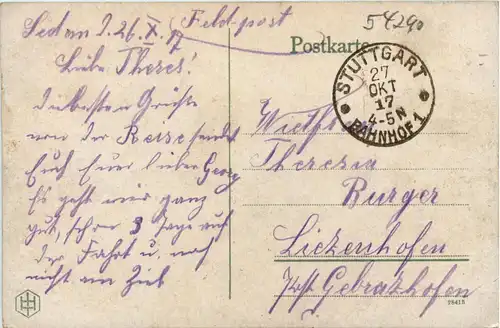 Sedan d. 26. X. 17
Feld-post
5429o
Postkarte
Liebe Theres!
die besten Grüße
von der Reise sendet
Euch Euer lieber Georg
Es geht mir ganz
gut, schon 3 Tage auf
der Fahrt u. noch
nicht am Ziel
STUTTGART
27
OKT
17
4-5N
BAHNHOF 1
Theresia
Burger
Liezenhofen
Post Gebrazhofen
98415